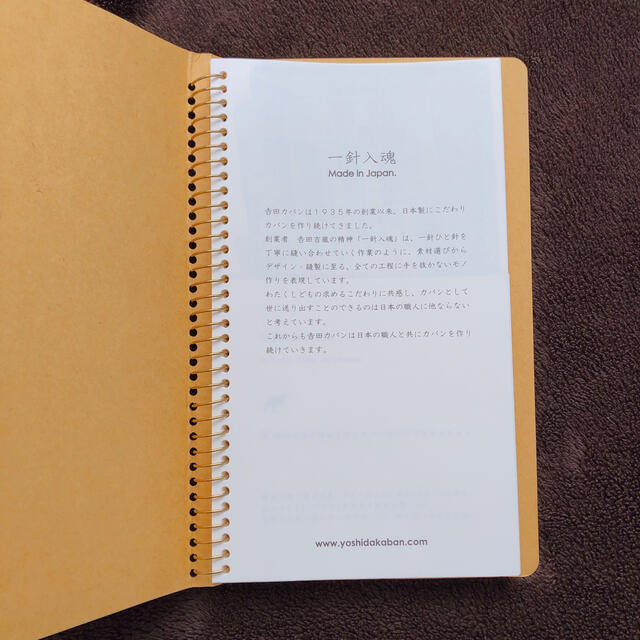 一針入魂
Made in Japan.
吉田カバンは1935年の創業以来、日本製にこだわり
カバンを作り続けてきました。
創業者 吉田吉蔵の精神「一針入魂」は、一針ひと針を
丁寧に縫い合わせていく作業のように、素材選びから
デザイン・縫製に至る、全ての工程に手を抜かないモノ
作りを表現しています。
わたくしどもの求めるこだわりに共感し、カバンとして
世に送り出すことのできるのは日本の職人に他ならない
と考えています。
これからも吉田カバンは日本の職人と共にカバンを作り
続けていきます。
www.yoshidakaban.com